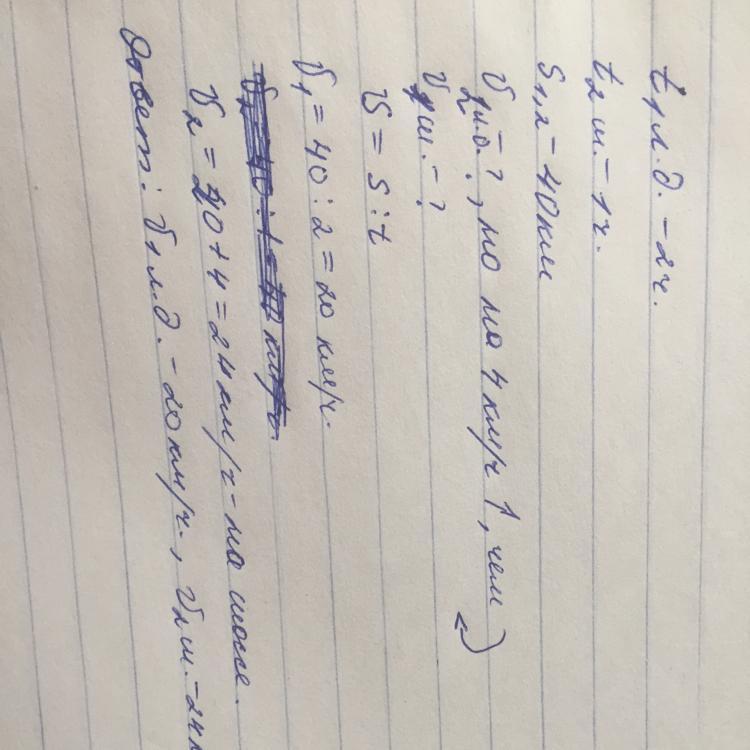 t₁ л.д. – 2ч.
t₂ ш. – 1ч.
S₁,₂ – 40км
V₂ л.д. – ?, но на 4 км/ч ↑, чем
V ш. – ?
V = S : t
V₁ = 40 : 2 = 20 км/ч.
V₂ = 20 + 4 = 24 км/ч – на шоссе.
Ответ: V₁ л.д. – 20 км/ч., V₂ ш. – 24